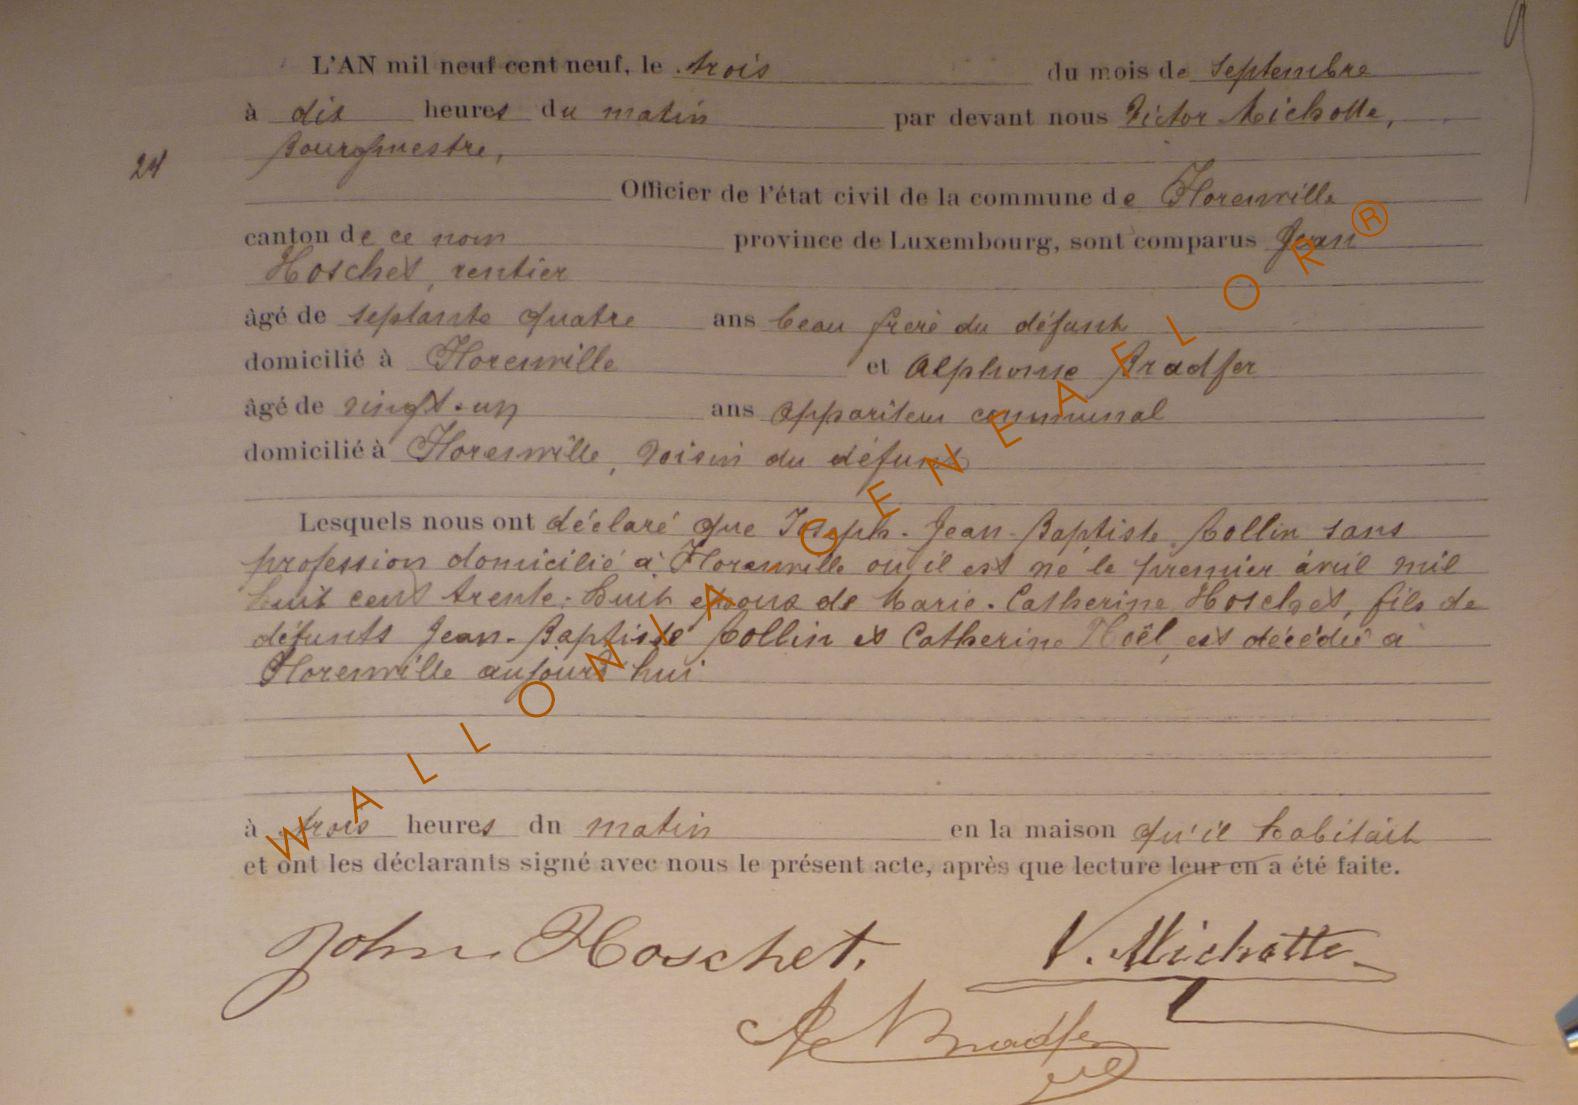 L'AN mil neuf cent neuf, le trois du mois de Septembre
à dix heures du matin par devant nous Victor Michotte,
Bourgmestre,
24
Officier de l'état civil de la commune de Florenville
canton de ce nom province de Luxembourg, sont comparus Jean
Hoschet, rentier
âgé de septante quatre ans beau frère du défunt
domicilié à Florenville et Alphonse Bradfer
âgé de vingt-un ans appariteur communal
domicilié à Florenville, voisin du défunt
Lesquels nous ont déclaré que Joseph-Jean-Baptiste Collin sans
profession domicilié à Florenville où il est né le premier avril mil
huit cent trente-huit époux de Marie-Catherine Hoschet, fils de
défunts Jean-Baptiste Collin et Catherine Noël, est décédé à
Florenville aujourd'hui
à trois heures du matin en la maison qu'il habitait
et ont les déclarants signé avec nous le présent acte, après que lecture leur en a été faite.
John Hoschet. V. Michotte
A Bradfer
WALLONIA GENEAFLOR®